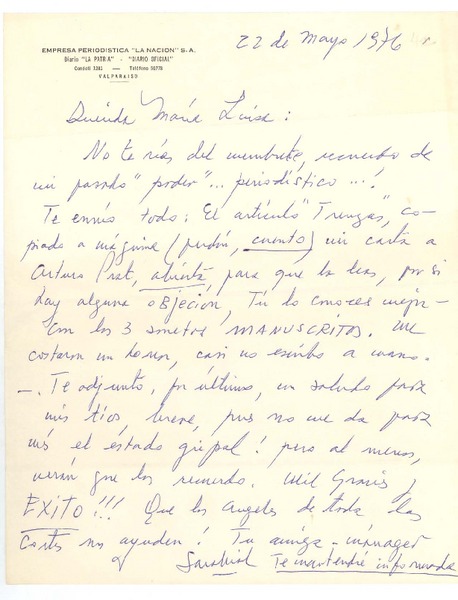 EMPRESA PERIODISTICA "LA NACION" S. A.
Diario "LA PATRIA" - "DIARIO OFICIAL"
Condell 1283 — Teléfono
VALPARAISO
22 de Mayo 1976
Querida María Luisa:
No te rías del membrete, recuerdo de
mi pasado "poder"... periodístico...!
Te envío todo: El artículo "Trenzas", co-
piado a máquina (perdón, cuento) mi carta a
Arturo Prat, abierta, para que la leas, por si
hay alguna objeción, Tú lo conoces mejor-
Con los 3 sonetos MANUSCRITOS. Me
costaron un horror, casi no escribo a mano-
—. Te adjunto, por último, un saludo para
mis tíos, breve, pues no me da para
más el estado gripal! pero al menos,
verán que los recuerdo. Mil Gracias,
EXITO!!! Que los Angeles de toda las
Cortes nos ayuden! Tu amiga - manager
Te mantendré informada